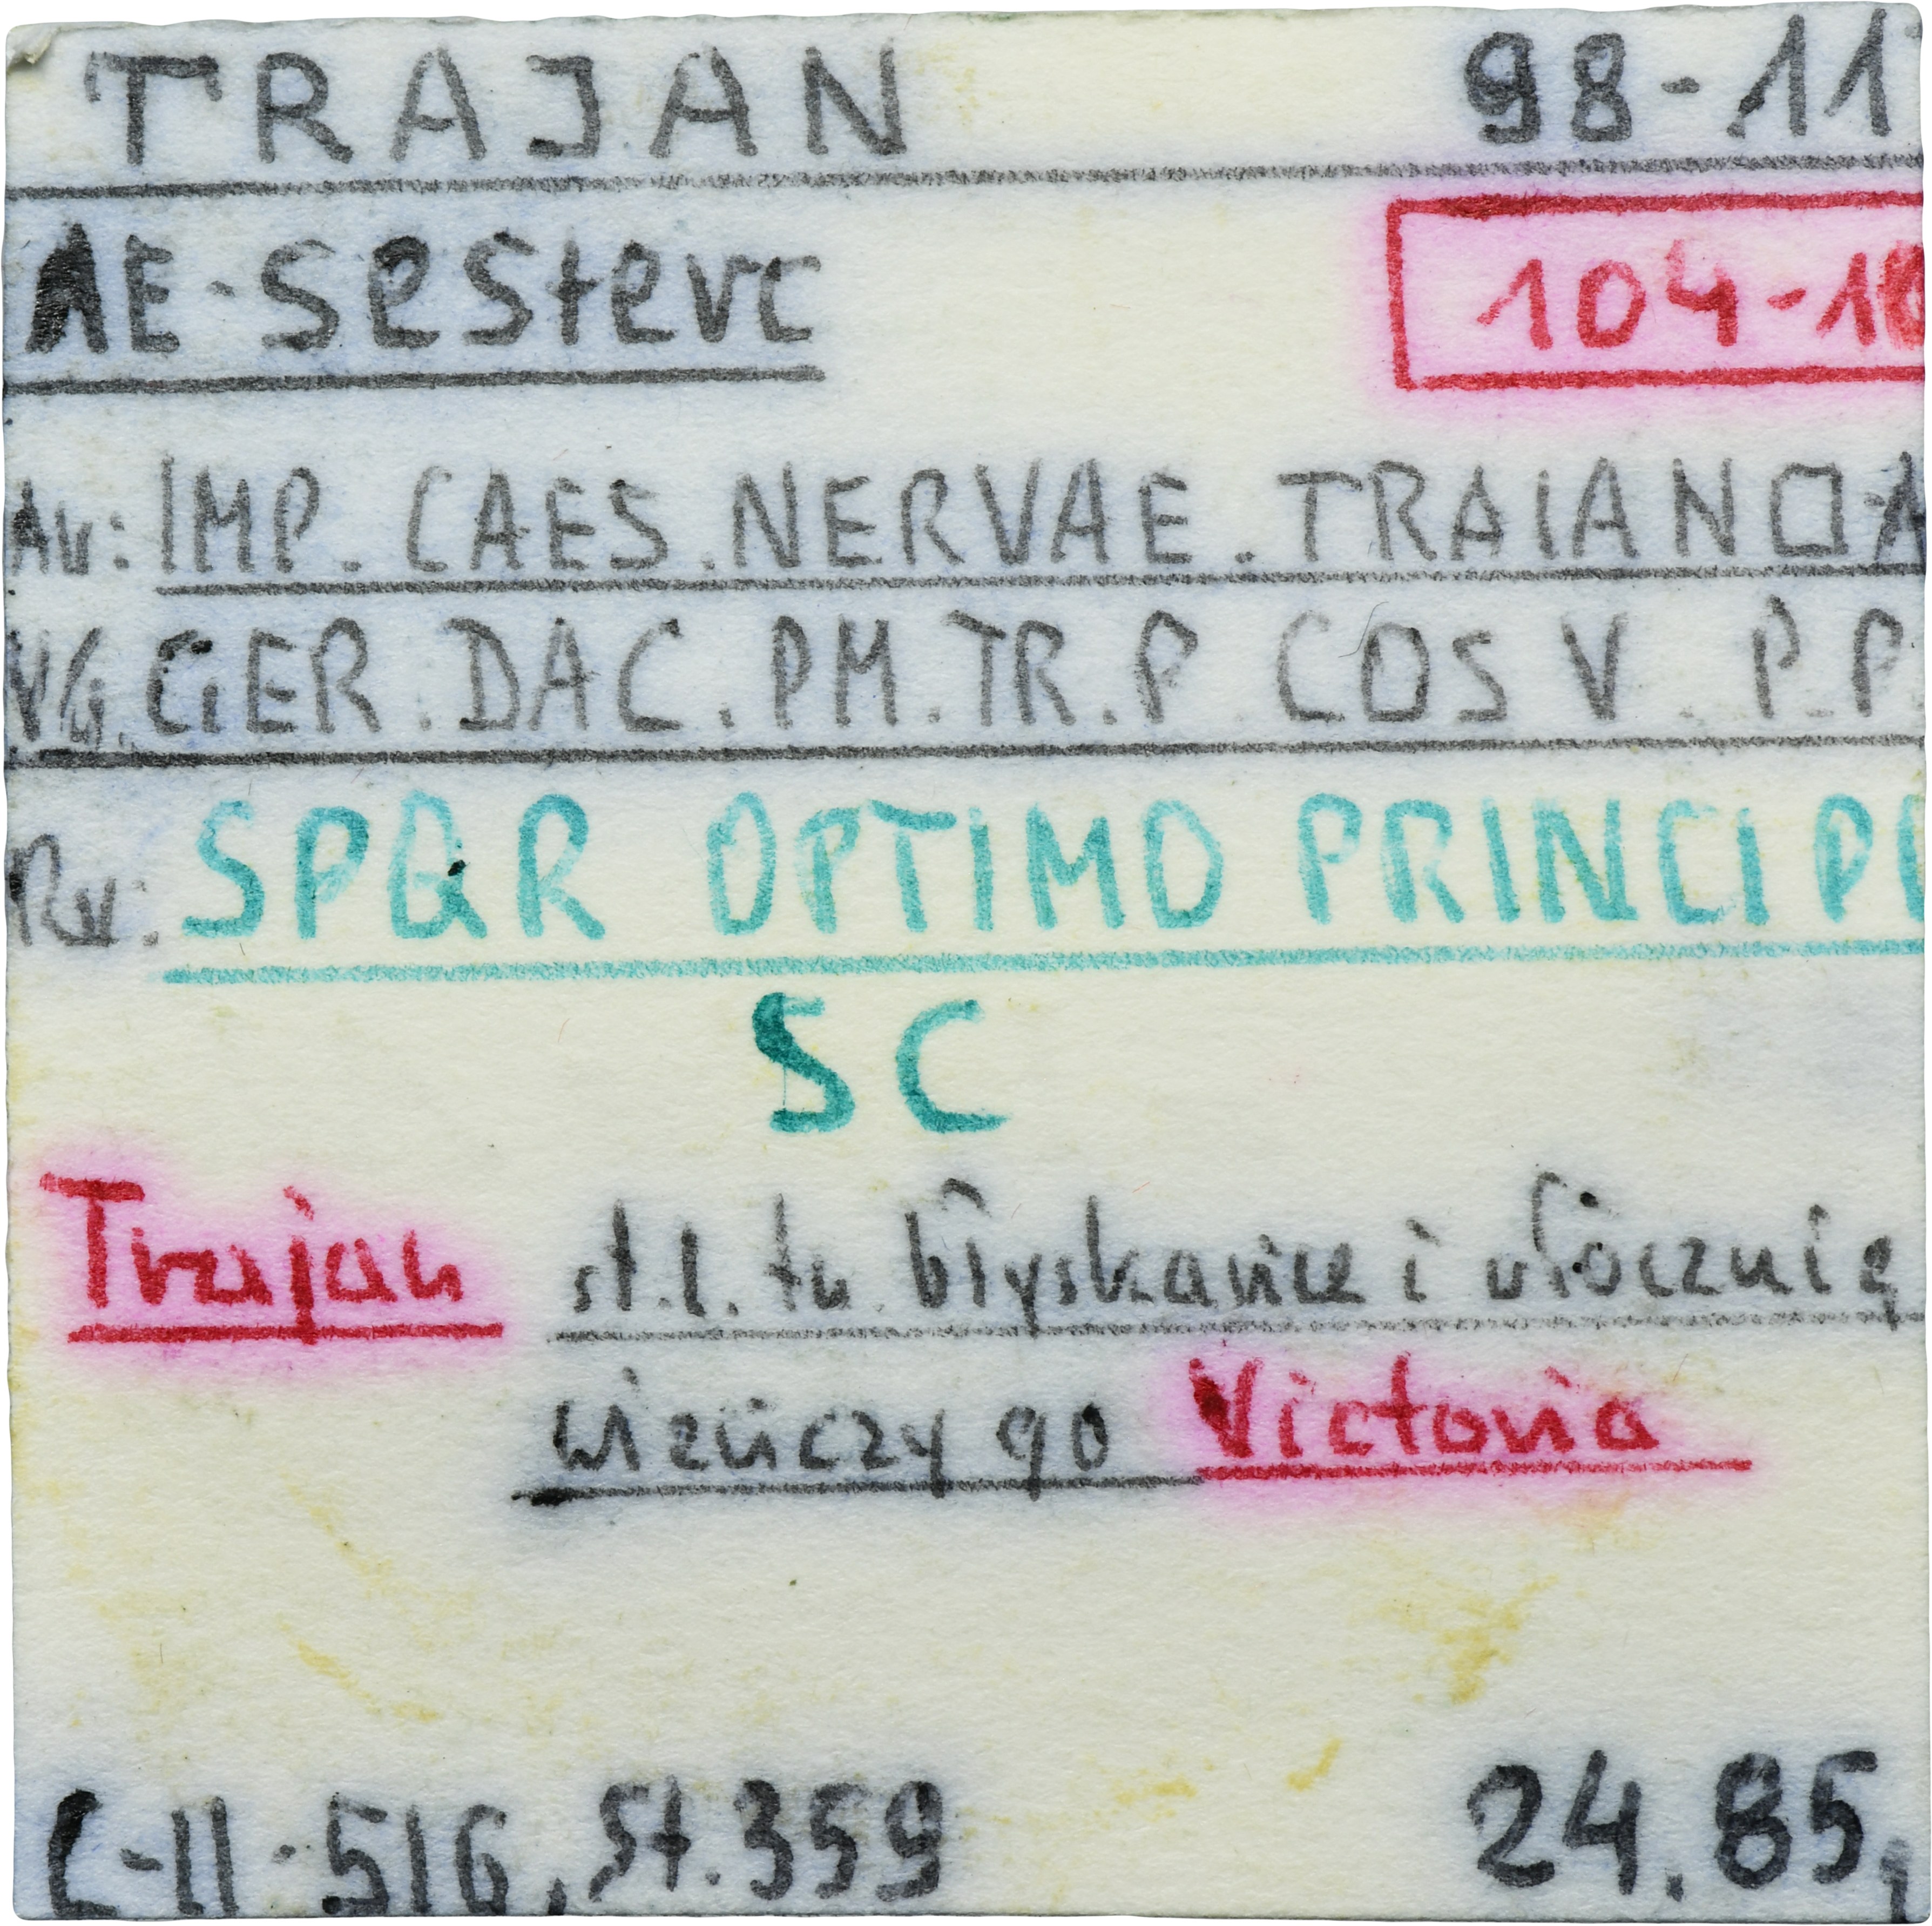 TRAJAN 98-11
AE-Sesterc
104-10
Av: IMP. CAES. NERVAE. TRAIANO A
VG. GER. DAC. PM. TR. P. COS V. P.P.
Rv: SPQR OPTIMO PRINCIPI
SC
Trajan st. l. trz. błyskawicę i włócznię
wieńczy go Victoria
C-II-516, St. 359 24.85